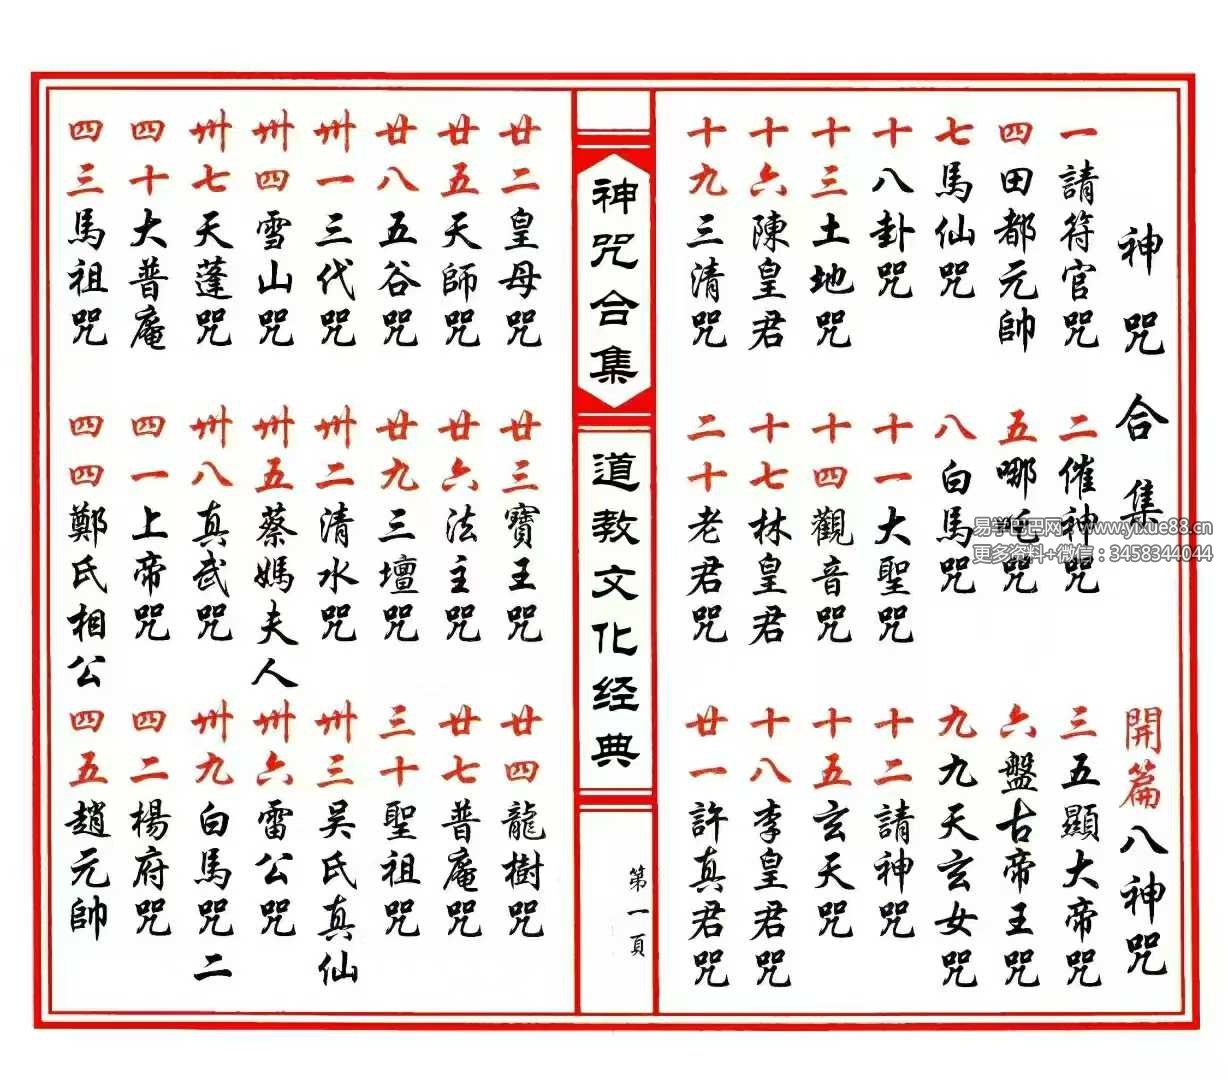 神咒合集 開篇八神咒
一請符官咒 二催神咒 三五顯大帝咒
四田都元帥 五哪吒咒 六盤古帝王咒
七馬仙咒 八白馬咒 九九天玄女咒
十八卦咒 十一大聖咒 十二請神咒
十三土地咒 十四觀音咒 十五玄天咒
十六陳皇君 十七林皇君 十八李皇君咒
十九三清咒 二十老君咒 廿一許真君咒
神咒合集
道教文化经典
第一頁
廿二皇母咒 廿三寶王咒 廿四龍樹咒
廿五天師咒 廿六法主咒 廿七普庵咒
廿八五谷咒 廿九三壇咒 三十聖祖咒
卅一三代咒 卅二清水咒 卅三吴氏真仙
卅四雪山咒 卅五蔡媽夫人 卅六雷公咒
卅七天蓬咒 卅八真武咒 卅九白馬咒二
四十大普庵 四一上帝咒 四二楊府咒
四三馬祖咒 四四鄭氏相公 四五趙元帥
易学巴巴网：www.yixue88.cn
更多资料+微信：3458344044